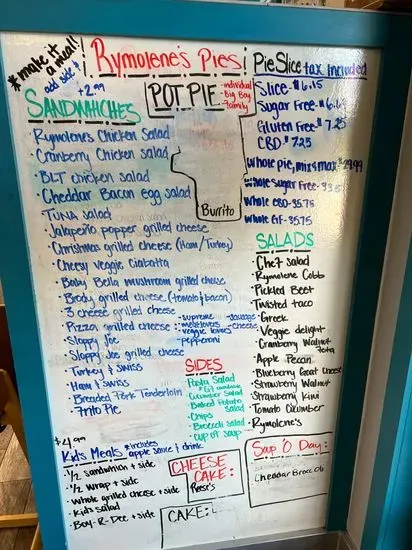 * make it a meal!
add side $
+2.99
Rymolene's Pies
POT PIE
-individual
-Big Boy
-Family
Pie Slice tax Included
Slice-$6.15
Sugar Free-$6.
Gluten Free-$7.25
CBD-$7.25
whole pie, mix & max
whole Sugar Free-
whole CBD-35.75
whole GF-35.75
SANDWHICHES
Rymolene's Chicken Salad
Cranberry Chicken salad
BLT chicken salad
Cheddar Bacon egg salad
TUNA salad
Jalapeño popper grilled cheese
Christmas grilled cheese (Ham/Turkey)
Cheesy Veggie Ciabatta
Baby Bella mushroom grilled cheese
Brody grilled cheese (tomato & bacon)
3 cheese grilled cheese
Pizza grilled cheese
-supreme
-meatlovers
-veggie lovers
-pepperoni
-sausage
-cheese
Sloppy Joe
Sloppy Joe grilled cheese
Turkey & Swiss
Ham & Swiss
Breaded Pork Tenderloin
Frito Pie
Burrito
SALADS
Chef salad
Rymolene Cobb
Pickled Beet
Twisted taco
Greek
Veggie delight
Cranberry Walnut
Feta
Apple Pecan
Blueberry Goat Cheese
Strawberry Walnut
Strawberry Kiwi
Tomato Cucumber
Rymolene's
SIDES
Pasta Salad
Cucumber Salad
Baked Potato
Salad
Chips
Broccoli salad
Cup of soup
$4.99
Kid's Meals *includes
apple sauce & drink
1/2 sandwich + side
1/2 wrap + side
Whole grilled cheese + side
Kid's salad
Boy-R-Dee + side
CHEESE
CAKE:
Reese's
CAKE:
Soup 'O Day:
Cheddar Broccoli